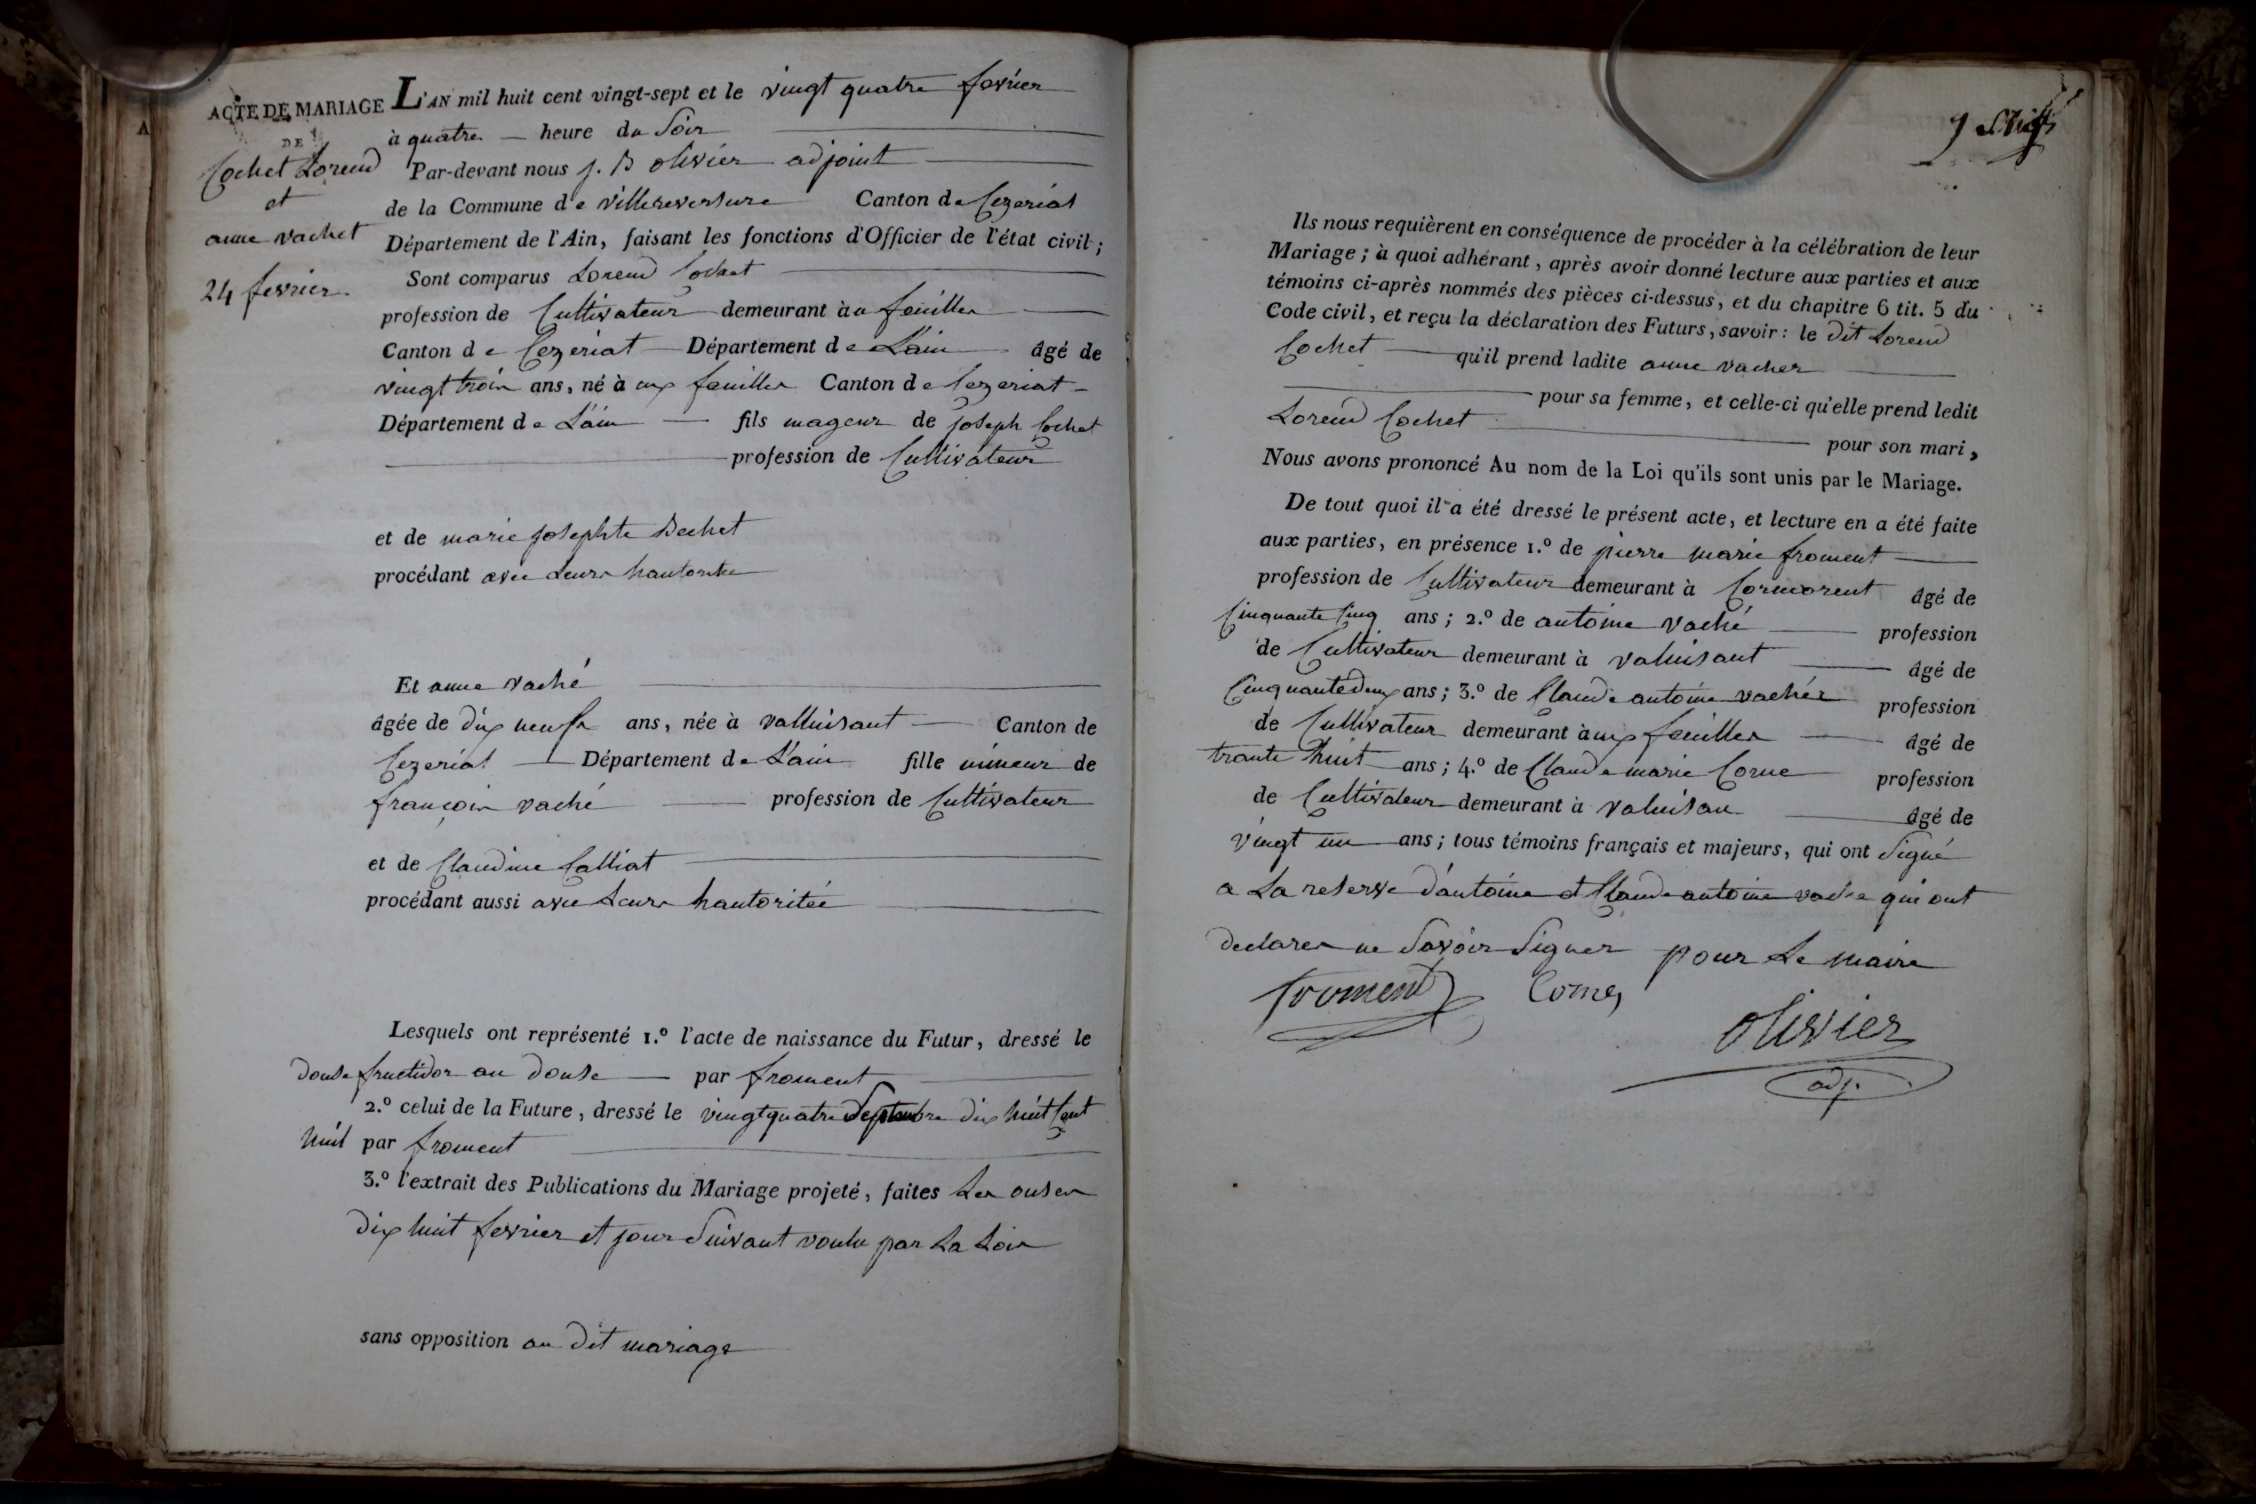 ACTE DE MARIAGE
DE
Cochet Lorend
et
anne vachet
24 fevrier
L'AN mil huit cent vingt-sept et le vingt quatre fevrier
à quatre heure du Soir
Par-devant nous j. B olivier adjoint
de la Commune de villereversure Canton de Cezeriat
Département de l'Ain, faisant les fonctions d'Officier de l'état civil;
Sont comparus Lorend Cochet
profession de Cultivateur demeurant àu feuilles
Canton de Cezeriat Département de L'ain âgé de
vingt trois ans, né à ux feuilles Canton de Cezeriat
Département de L'ain fils mageur de joseph Cochet
profession de Cultivateur
et de marie josephte Bechet
procédant avec Leurs hautorite
Et anne vaché
âgée de dix neufs ans, née à valluisant Canton de
Cezeriat Département de L'ain fille mineur de
françois vaché profession de Cultivateur
et de Claudine Calliat
procédant aussi avec Leurs hautoritée
Lesquels ont représenté 1.º l'acte de naissance du Futur, dressé le
douse fructidor an douse par froment
2.º celui de la Future, dressé le vingtquatre Septembre dix huit Cent
huit par froment
3.º l'extrait des Publications du Mariage projeté, faites Les onse et
dix huit fevrier et jour Suivant voulu par La Loix
sans opposition au dit mariage
9
Ils nous requièrent en conséquence de procéder à la célébration de leur
Mariage; à quoi adhérant, après avoir donné lecture aux parties et aux
témoins ci-après nommés des pièces ci-dessus, et du chapitre 6 tit. 5 du
Code civil, et reçu la déclaration des Futurs, savoir: le dit Lorend
Cochet qu'il prend ladite anne vacher
pour sa femme, et celle-ci qu'elle prend ledit
Lorend Cochet pour son mari,
Nous avons prononcé Au nom de la Loi qu'ils sont unis par le Mariage.
De tout quoi il a été dressé le présent acte, et lecture en a été faite
aux parties, en présence 1.º de pierre marie froment
profession de Cultivateur demeurant à Cormorent âgé de
Cinquante Cinq ans; 2.º de antoine vaché profession
de Cultivateur demeurant à valuisant âgé de
Cinquante deux ans; 3.º de Claude antoine vachér profession
de Cultivateur demeurant àux feuilles âgé de
trante huit ans; 4.º de Claude marie Corne profession
de Cultivateur demeurant à valuisan âgé de
vingt un ans; tous témoins français et majeurs, qui ont Signé
a La reserve d'antoine et Claude antoine vache qui ont
declarer ne Savoir Signer pour Le maire
froment Corne
olivier
adj.